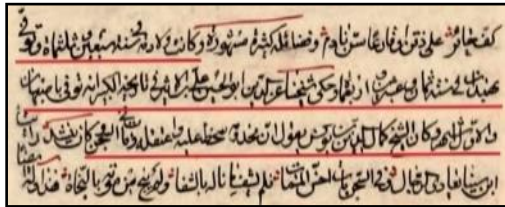 كف حائر على ذقن او قارعا سن نادم وفضائله كثيرة مشهورة وكانت ولادته في سنة سبعين وثلثماة وتوفي
بهمدان في سنة ثمان وعشرين واربعماة وحكى شيخنا عز الدين ابو الحسن علي بن الاثير في تاريخه الكبير انه توفي باصبهان
والاول اشهر وكان الشيخ كمال الدين بن يونس يقول ان مخدومه سخط عليه واعتقله ومات في السجن وكان ينشد
ابن سينا يعادي الرجال وفي السجن مات اخس الممات فلم يشف ما ناله بالشفا ولم ينج من موته بالنجاة